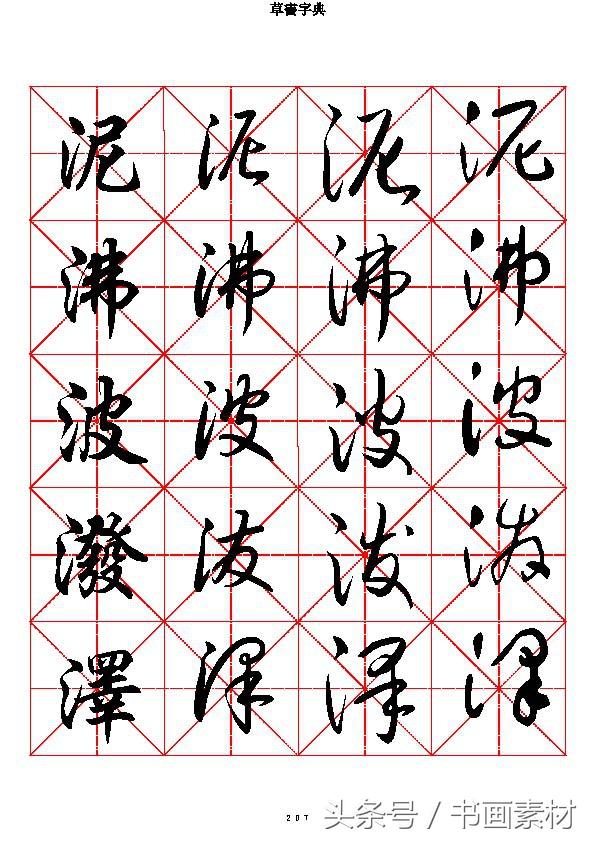 草書字典
泥泥泥泥
沸沸沸沸
波波波波
潑泼泼泼
澤泽泽泽
207
头条号 / 书画素材